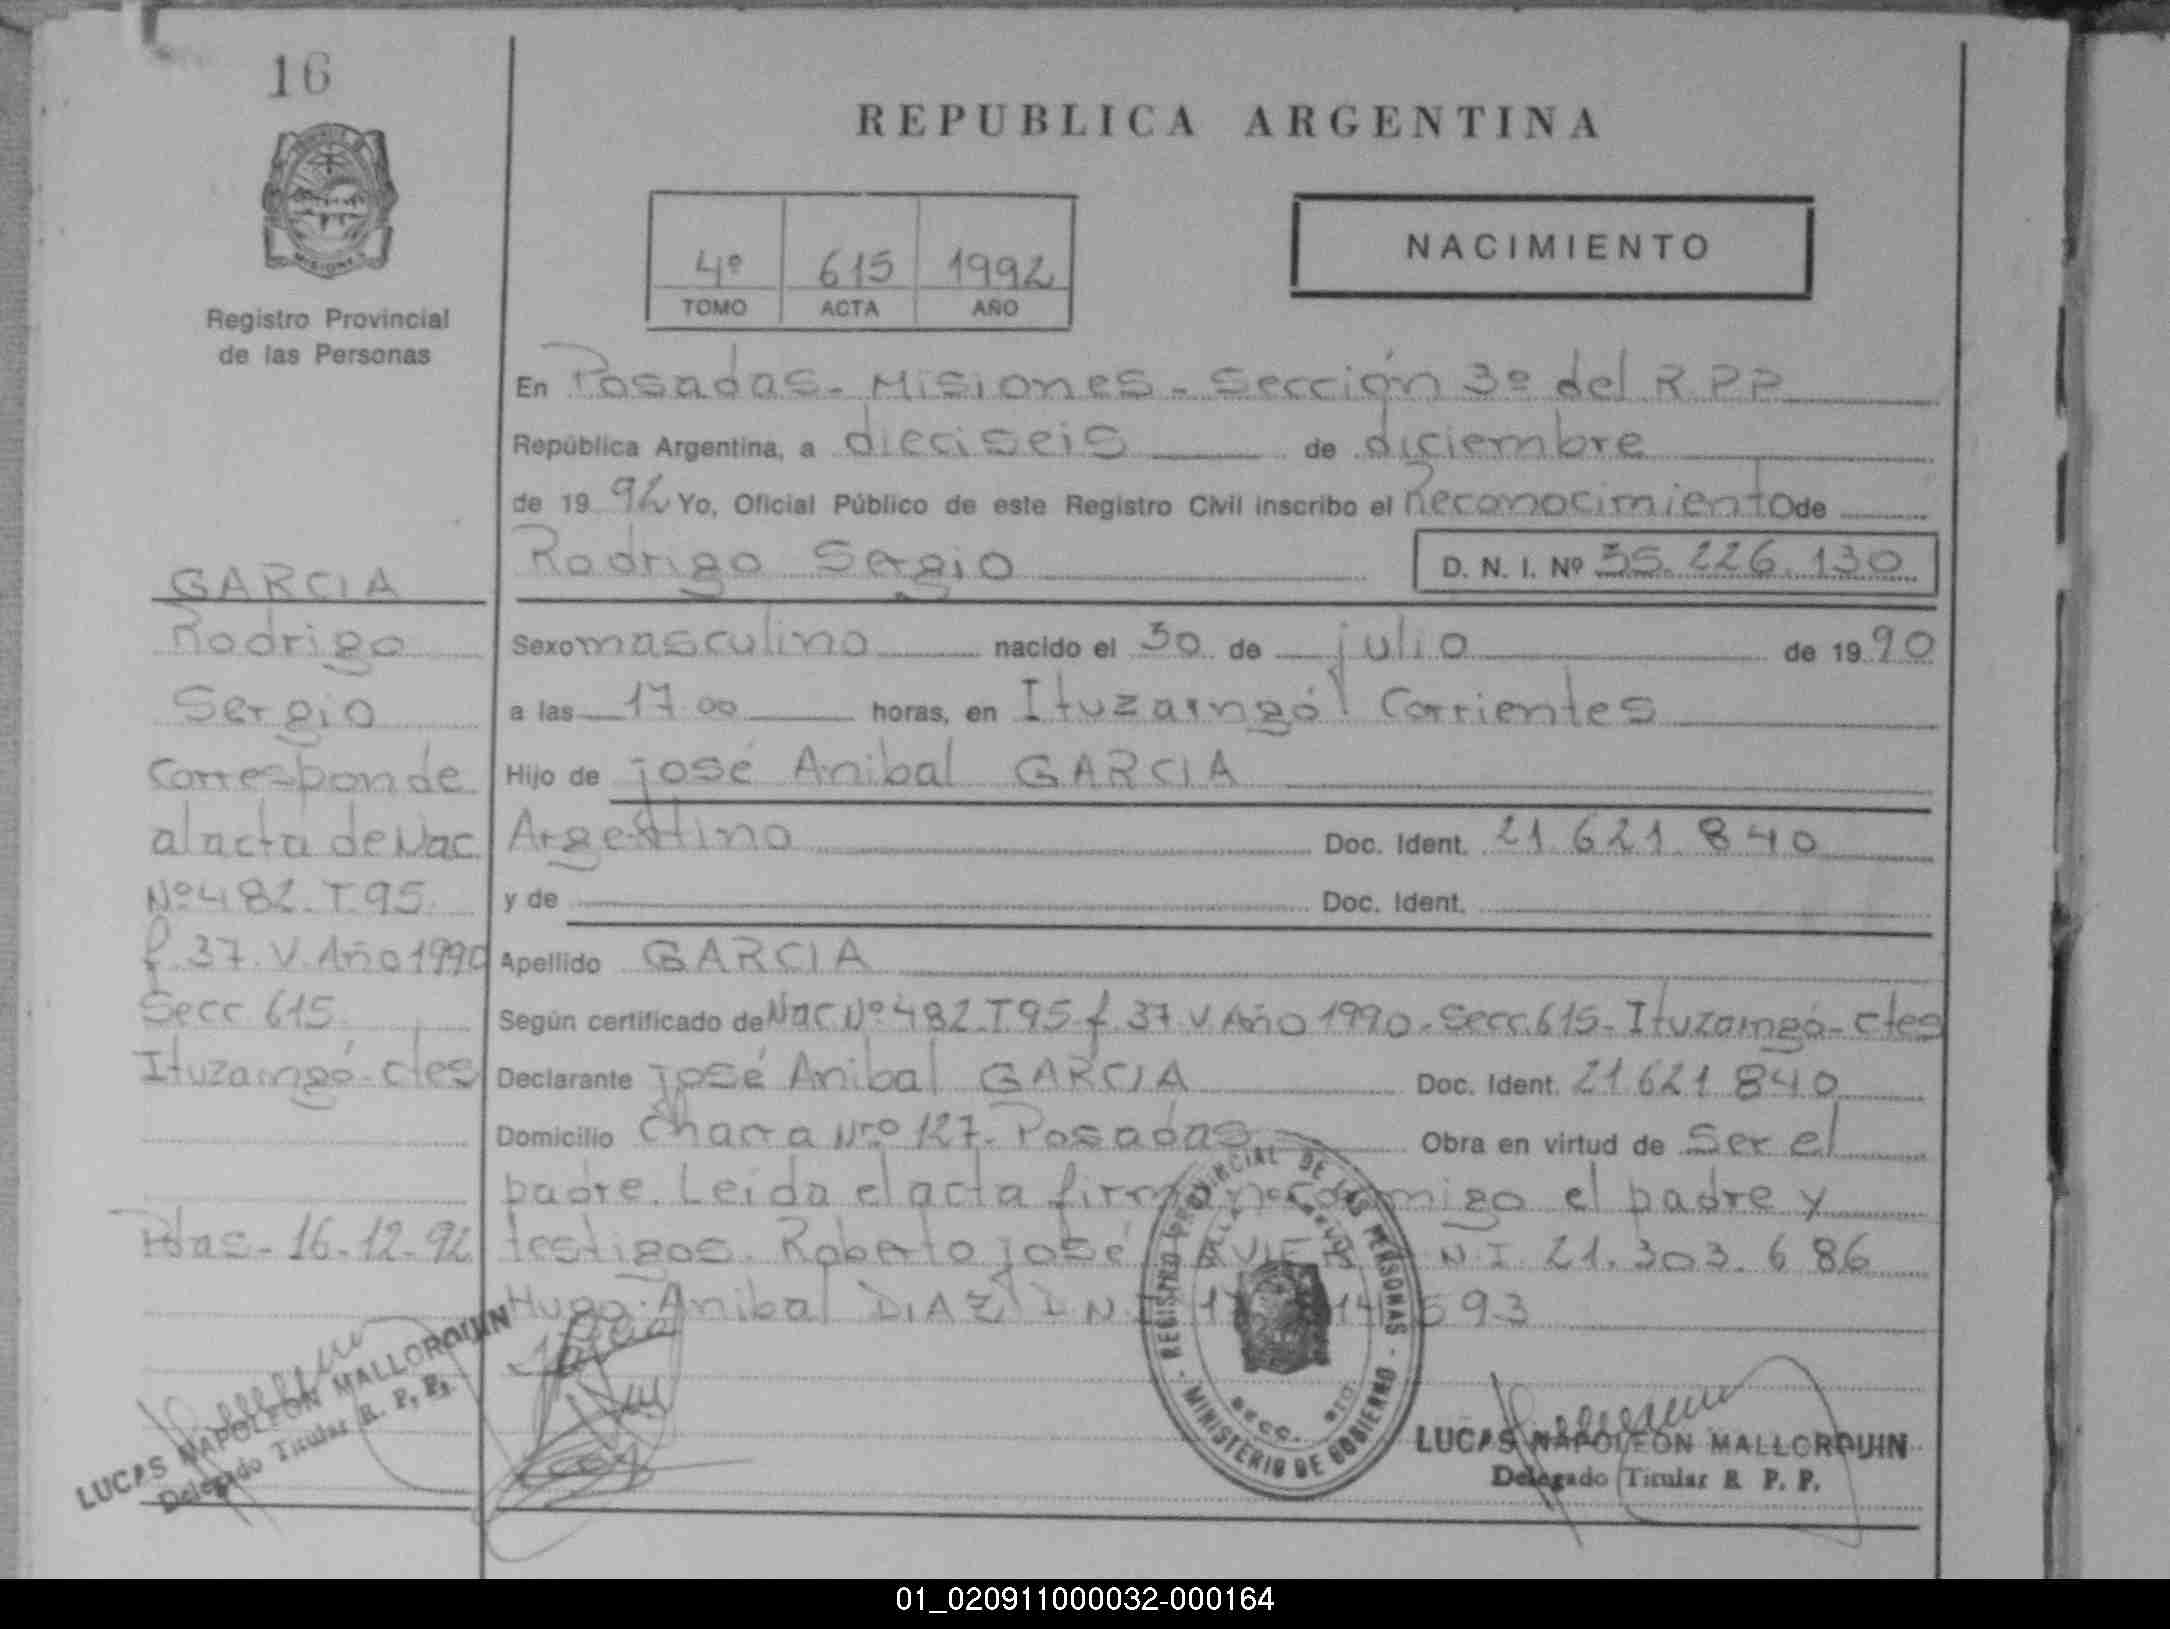 16
REPUBLICA ARGENTINA
MISIONES
Registro Provincial
de las Personas
4º 615 1992
TOMO ACTA AÑO
NACIMIENTO
En Posadas - Misiones - Sección 3º del R.P.P.
República Argentina, a dieciseis de diciembre
de 19 92 Yo, Oficial Público de este Registro Civil inscribo el Reconocimiento de
Rodrigo Sergio D. N. I. Nº 35.226.130
Sexo masculino nacido el 30 de julio de 19 90
a las 17 00 horas, en Ituzaingó Corrientes
Hijo de josé Anibal GARCIA
Argentino Doc. Ident. 21.621.840
y de Doc. Ident.
Apellido GARCIA
Según certificado de Nac Nº 482 T 95 f. 37 V Año 1990 - Secc. 615 - Ituzaingó - ctes
Declarante josé Anibal GARCIA Doc. Ident. 21.621.840
Domicilio Chacra Nro 127 - Posadas Obra en virtud de Ser el
padre. Leida el acta firman conmigo el padre y
testigos. Roberto josé N.I. 21.303.686
Hugo Anibal DIAZ D.N. 593
GARCIA
Rodrigo
Sergio
Corresponde
al acta de Nac
Nº 482 - T 95.
f. 37. V. Año 1990
Secc 615.
Ituzaingó - ctes
Pdas - 16-12-92
LUCAS NAPOLEON MALLORQUIN
Delegado Titular R. P. P.
REGISTRO PROVINCIAL DE LAS PERSONAS
SECC.
MINISTERIO DE GOBIERNO
LUCAS NAPOLEON MALLORQUIN
Delegado Titular R. P. P.
01_020911000032-000164